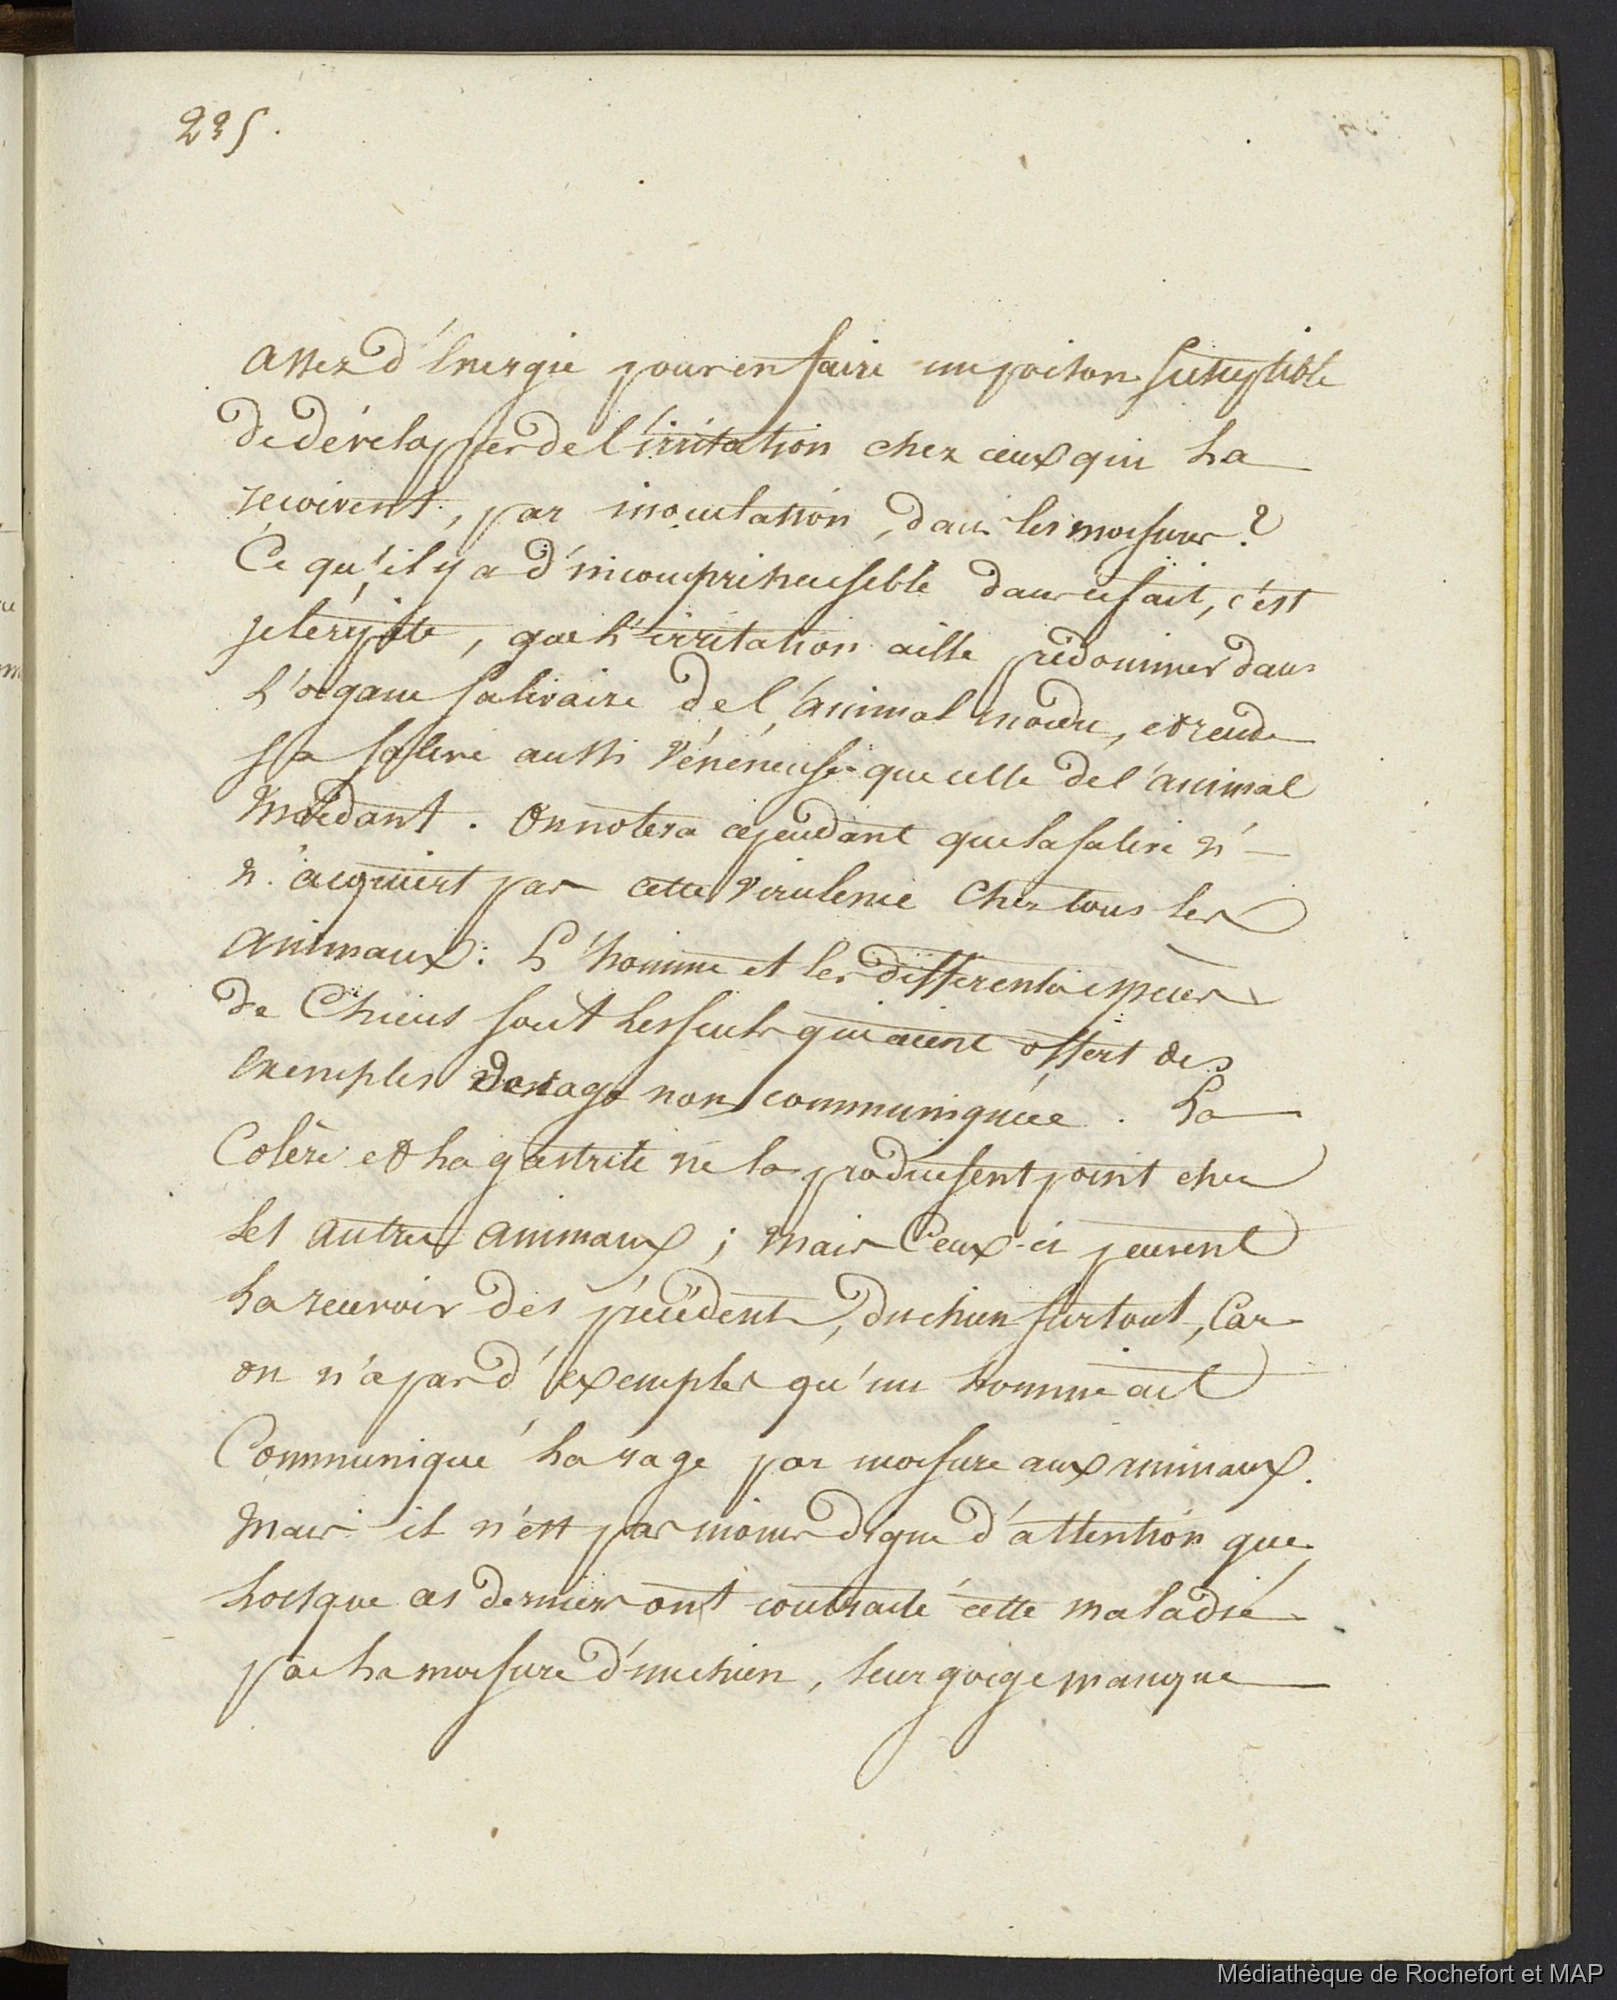 235.
assez d'énergie pour en faire un poison susceptible
de développer de l'irritation chez ceux qui la
reçoivent, par inoculassion, dans les morsures ?
Ce qu'il y a d'incomprihensible dans ce fait, c'est
je le répète, que l'irritation aille prédominer dans
l'organe salivaire de l'animal mordu, et rende
sa salive aussi vénéneuse que celle de l'animal
mordant. On notera cependant que la salive n'
n'acquiert pas cette virulence chez tous les
animaux : L'homme et les differentes espèces
de Chiens sont les seuls qui aient offert des
exemples de rage non communiquée. La
Colère et la gastrite ne la produisent point chez
les autres animaux ; mais Ceux-ci peuvent
la recevoir des précédents, du chien surtout, Car
on n'a pas d'exemples qu'un homme ait
Communiqué la rage par morsure aux animaux.
Mais il n'est pas moins digne d'attention que
lorsque ces derniers ont contracté cette maladie
par la morsure d'un chien, leur gorge manque
Médiathèque de Rochefort et MAP